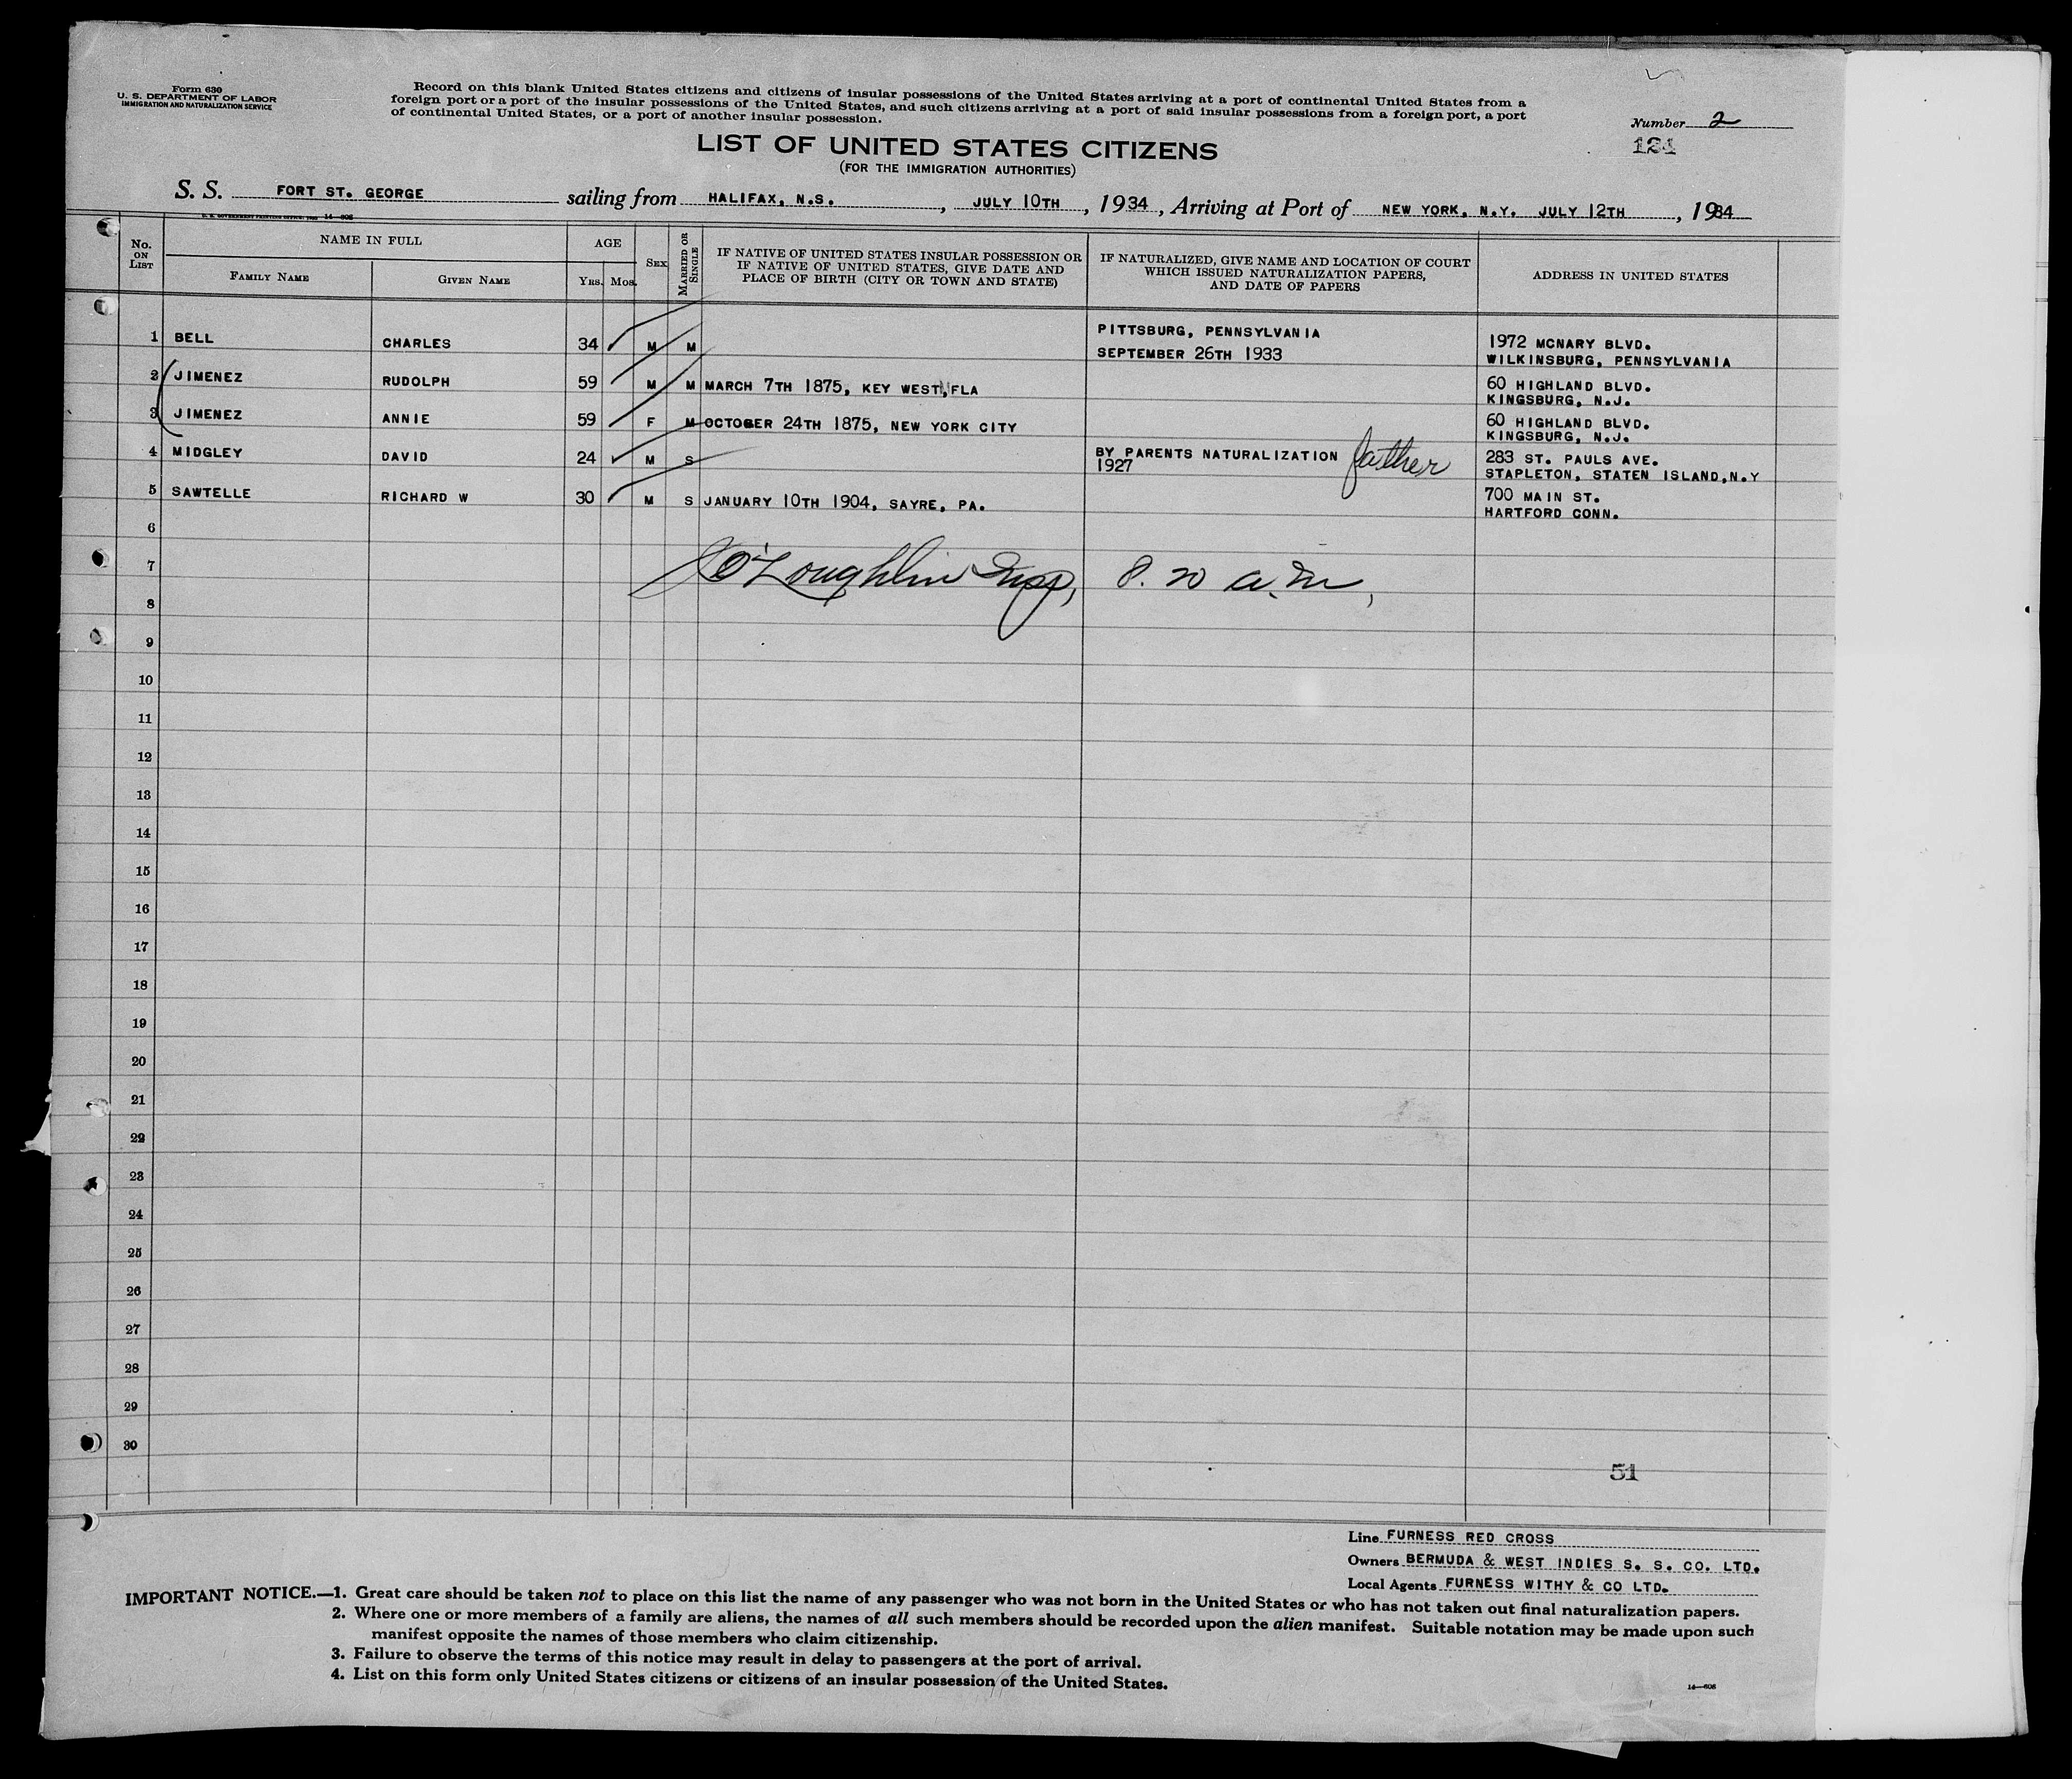 Form 630
U. S. DEPARTMENT OF LABOR
IMMIGRATION AND NATURALIZATION SERVICE
Record on this blank United States citizens and citizens of insular possessions of the United States arriving at a port of continental United States from a
foreign port or a port of the insular possessions of the United States, and such citizens arriving at a port of said insular possessions from a foreign port, a port
of continental United States, or a port of another insular possession.
Number 2
LIST OF UNITED STATES CITIZENS
(FOR THE IMMIGRATION AUTHORITIES)
S. S. FORT ST. GEORGE sailing from HALIFAX, N.S. , JULY 10TH , 1934 , Arriving at Port of NEW YORK, N.Y. JULY 12TH , 1934
No. ON LIST NAME IN FULL AGE SEX MARRIED OR SINGLE IF NATIVE OF UNITED STATES INSULAR POSSESSION OR IF NATIVE OF UNITED STATES, GIVE DATE AND PLACE OF BIRTH (CITY OR TOWN AND STATE) IF NATURALIZED, GIVE NAME AND LOCATION OF COURT WHICH ISSUED NATURALIZATION PAPERS, AND DATE OF PAPERS ADDRESS IN UNITED STATES
FAMILY NAME GIVEN NAME YRS. MOS.
1 BELL CHARLES 34 M M PITTSBURG, PENNSYLVANIA 1972 MCNARY BLVD.
SEPTEMBER 26TH 1933 WILKINSBURG, PENNSYLVANIA
2 JIMENEZ RUDOLPH 59 M M MARCH 7TH 1875, KEY WEST, FLA 60 HIGHLAND BLVD.
KINGSBURG, N.J.
3 JIMENEZ ANNIE 59 F M OCTOBER 24TH 1875, NEW YORK CITY 60 HIGHLAND BLVD.
KINGSBURG, N.J.
4 MIDGLEY DAVID 24 M S BY PARENTS NATURALIZATION father 283 ST. PAULS AVE.
1927 STAPLETON, STATEN ISLAND, N.Y
5 SAWTELLE RICHARD W 30 M S JANUARY 10TH 1904, SAYRE, PA. 700 MAIN ST.
HARTFORD CONN.
6
7 O'Loughlin Insp, 8.20 a.m,
8
9
10
11
12
13
14
15
16
17
18
19
20
21
22
23
24
25
26
27
28
29
30
51
Line FURNESS RED CROSS
Owners BERMUDA & WEST INDIES S. S. CO. LTD.
Local Agents FURNESS WITHY & CO LTD.
IMPORTANT NOTICE.—1. Great care should be taken not to place on this list the name of any passenger who was not born in the United States or who has not taken out final naturalization papers.
2. Where one or more members of a family are aliens, the names of all such members should be recorded upon the alien manifest. Suitable notation may be made upon such
manifest opposite the names of those members who claim citizenship.
3. Failure to observe the terms of this notice may result in delay to passengers at the port of arrival.
4. List on this form only United States citizens or citizens of an insular possession of the United States.